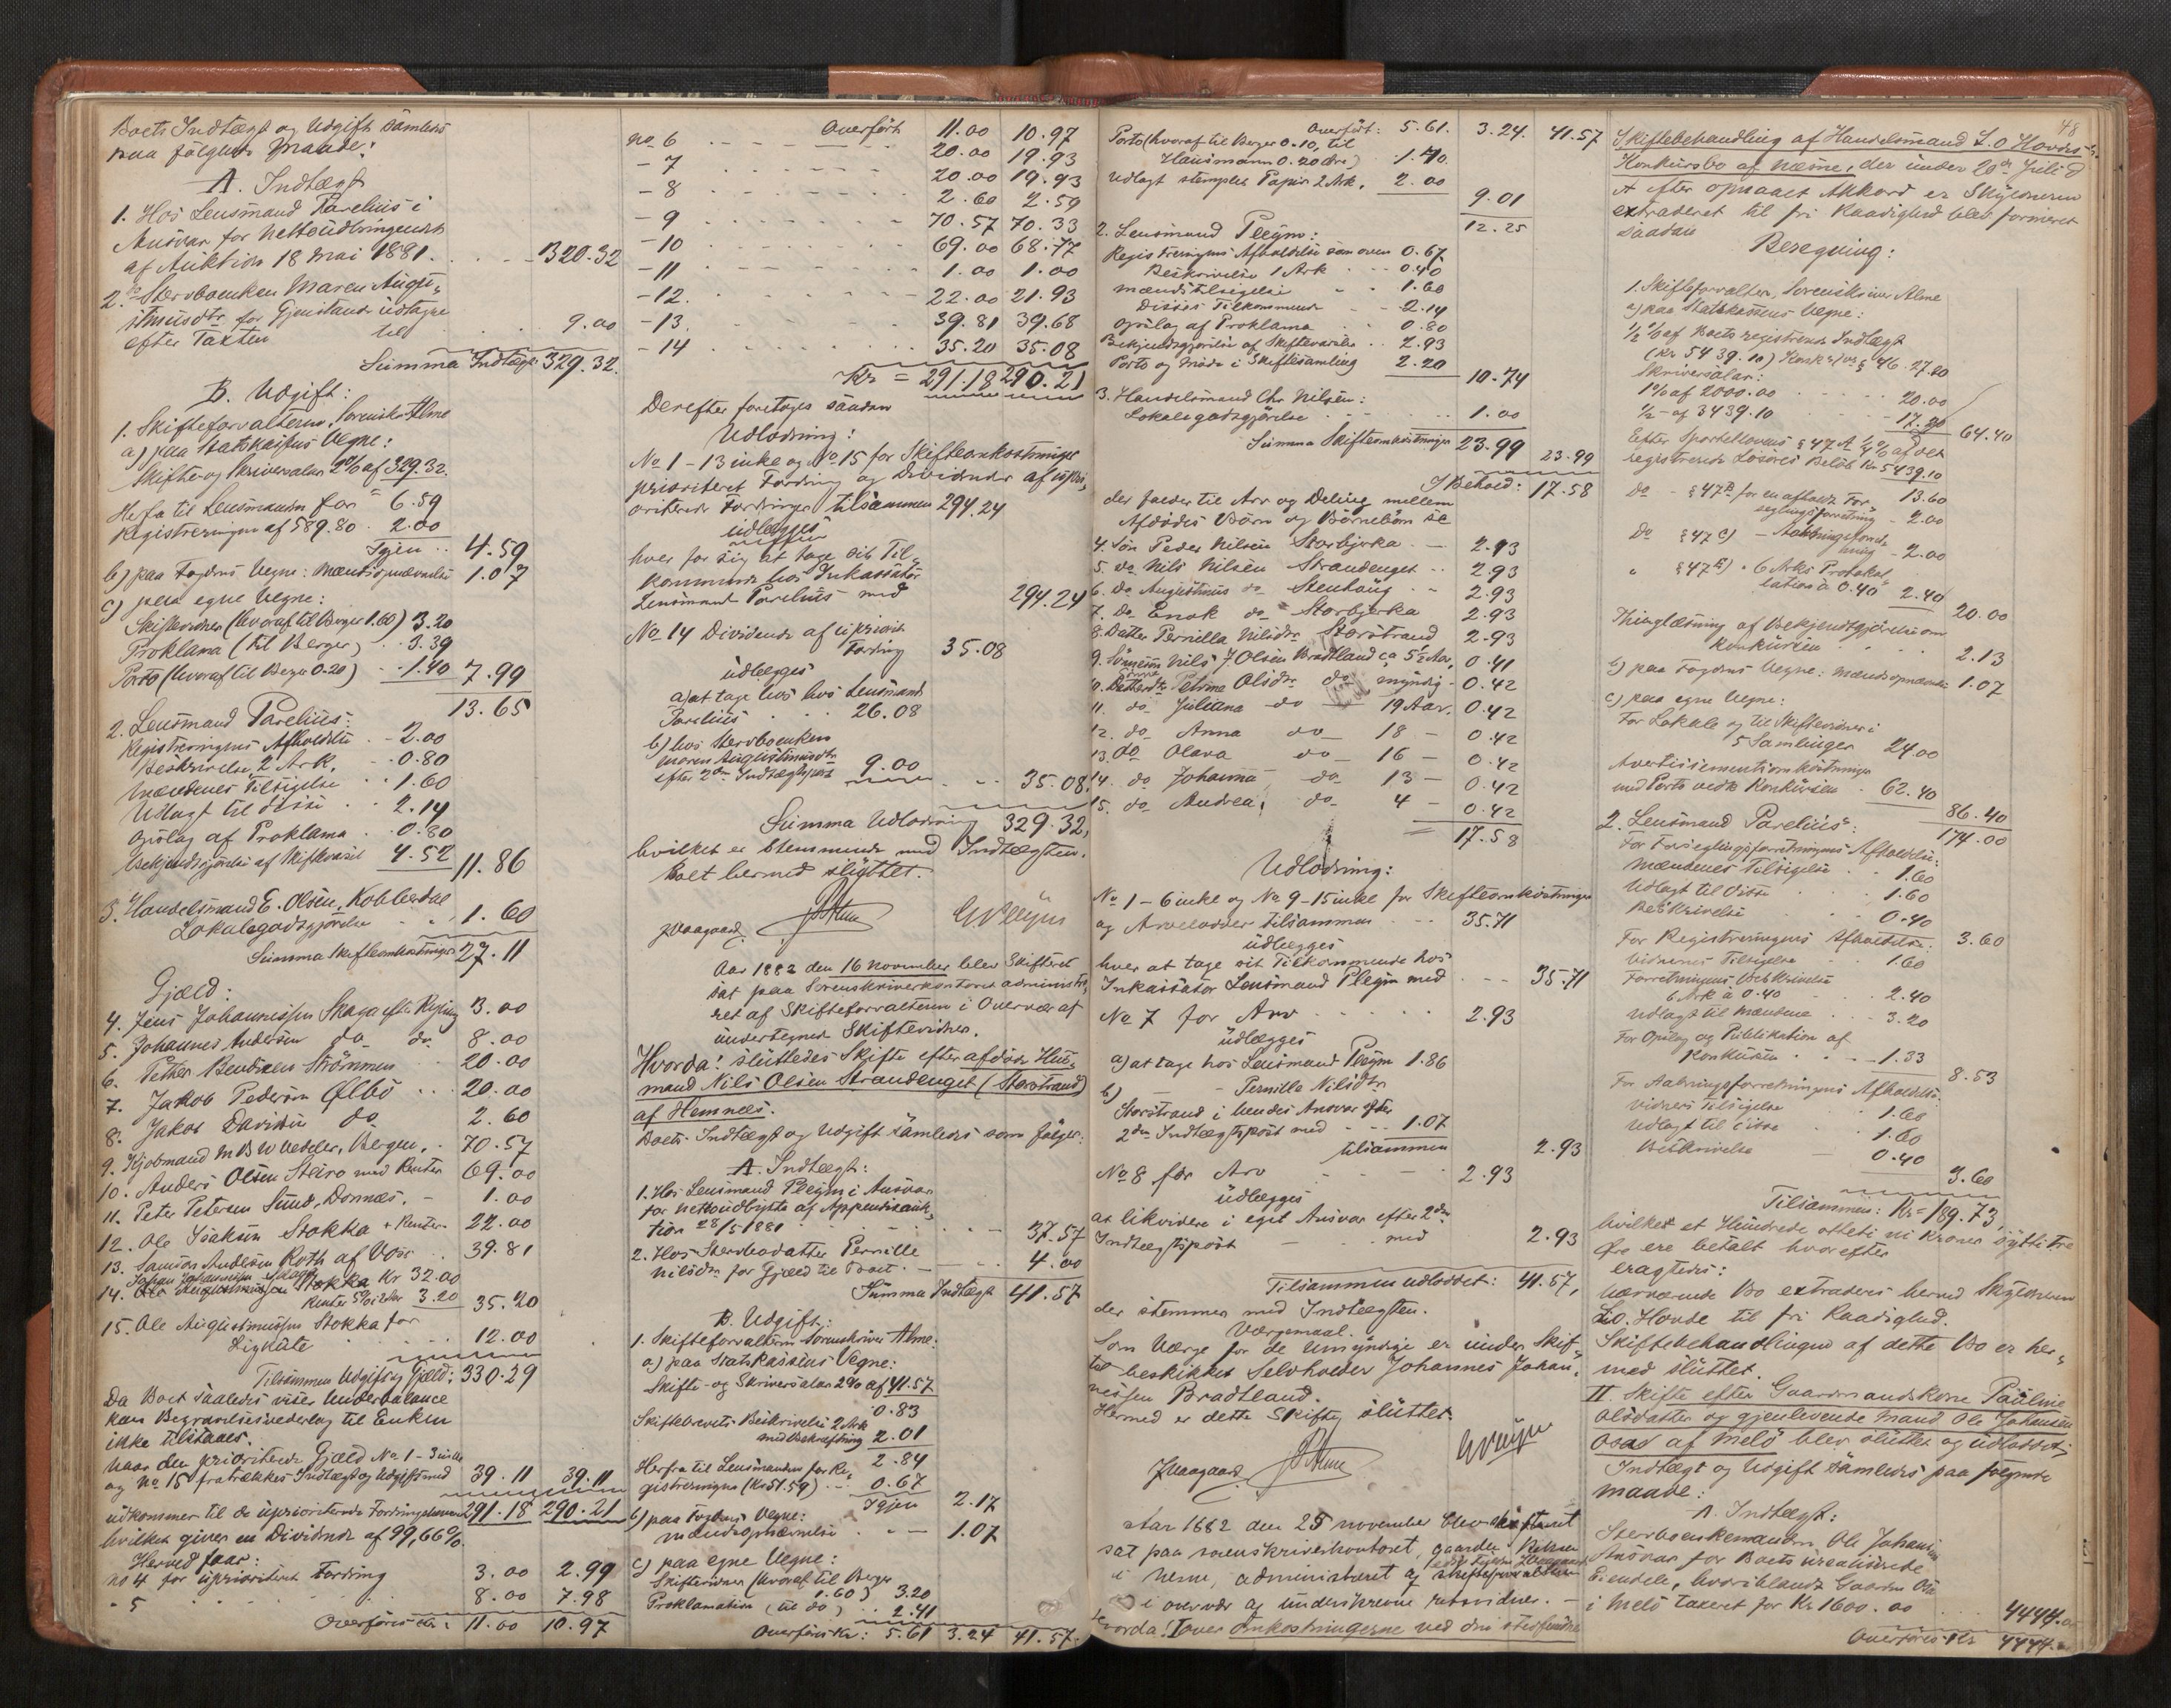 Boets Indtægt og Udgift samledes
paa følgende Maade:
A. Indtægt
1. Hos Lensmand Parelius i
Ansvar for Nettoudbringendet
af Auktion 18 Mai 1881. 320.32
2. Stervboenken Maren Augu-
stinusdtr for Gjenstande udtagne
efter Taxten til 9.00
Summa Indtægt: 329.32.
B. Udgift:
1. Skifteforvalteren, Sorenskr. Alme
a) paa Statskassens Vegne:
Skifte og Skriversalær 2% af 329.32.
6.59
Herfra til Lensmanden for
Registreringen af 589.80 2.00
Igjen 4.59
b) paa Fogdens Vegne: Mændsopnævnelse 1.07
c) paa egne Vegne:
Skiftevidner (hvoraf til Berger 1.60) 3.20
Proklama (til Berger) 3.39
Porto (hvoraf til Berger 0.20) 1.40 7.99
13.65
2. Lensmand Parelius:
Registreringens Afholdelse 2.00
Beskrivelse 2 Ark. 0.80
Mændenes Tilsigelse 1.60
Udlagt til disse 2.14
Opslag af Proklama 0.80
Bekjendtgjørelse af Skiftevarsel 4.52 11.86
3. Handelsmand E. Olsen, Kobberdal
Lokalegodtgjørelse 1.60
Summa Skifteomkostninger 27.11
Gjæld:
4. Jens Johannessen Skaga efter Regning 3.00
5. Johannes Andersen do do 8.00
6. Petter Bendixen Strømmen 20.00
7. Jakob Pedersen Ølbø 20.00
8. Jakob Davidsen do 2.60
9. Kjøbmand M B W Vedeler, Bergen, 70.57
10. Anders Olsen Steiro med Renter 69.00
11. Peter Petersen Sund, Donnæs. 1.00
12. Ole Isaksen Stokka + Renter 22.00
13. Samson Andersen Roth af Voss 39.81
14. Stokka Kr 32.00
Renter 5% i 2 Aar 3.20 35.20
15. Ole Augustinussen Stokka for
Ligkiste 12.00
Tilsammen Udgift og Gjæld: 330.29
Da Boet saaledes viser Underbalance
kan Begravelsesvederlag til Enken
ikke tilstaaes.
Naar den prioriterede Gjæld No 1-3 inkl
og No 15 fratrækkes Indtægt og Udgift med 39.11 39.11
udkommer til de uprioriterede Fordringshavere 291.18 290.21
hvilket giver en Dividende af 99,66%.
Herved faar:
No 4 for uprioriteret Fordring 3.00 2.99
- 5 8.00 7.98
Overføres Kr: 11.00 10.97
Overført 11.00 10.97
No 6 20.00 19.93
- 7 20.00 19.93
- 8 2.60 2.59
- 9 70.57 70.33
- 10 69.00 68.77
- 11 1.00 1.00
- 12. 22.00 21.93
- 13. 39.81 39.68
- 14 35.20 35.08
Kr = 291.18 290.21
Derefter foretoges saadan
Udlodning:
No 1-13 inkl og No 15 for Skifteomkostninger
prioriteret Fordring og Dividender af upri-
oriterede Fordringer tilsammen 294.24
udlægges
hver for sig at tage sit Til-
kommende hos Inkassator
Lensmand Parelius med 294.24
No 14 Dividende af upriorit
Fordring 35.08
udlægges
a) at tage hos hos Lensmand
Parelius 26.08
b) hos Stervboenken
Maren Augustinusdtr
efter 2den Indtægtspost 9.00 35.08.
Summa Udlodning 329.32,
hvilket er stemmende med Indtægten.
Boet hermed sluttet.
JMaagaard. Alme GPleym
Aar 1882 den 16 November blev Skifteret
sat paa Sorenskriverkontoret administre-
ret af Skifteforvalteren i Overvær af
undertegnede Skiftevidner.
Hvorda! sluttedes Skifte efter afdøde Hus-
mand Nils Olsen Strandenget (Storstrand)
af Hemnes.
Boets Indtægt og Udgift samledes som følger:
A. Indtægt:
1. Hos Lensmand Pleym i Ansvar
for Nettoudbytte af Appertisauk-
tion 28/5 1881 37.57
2. Hos Stervbodatter Pernille
Nilsdtr for Gjæld til Boet. 4.00
Summa Indtægt 41.57
B. Udgift:
1. Skifteforvalteren Sorenskriver Alme:
a) paa Statskassens Vegne:
Skifte- og Skriversalær 2% af 41.57
0.83
Skiftebrevets Beskrivelse 2 Ark
med Bekræftning 2.01
2.84
Herfra til Lensmanden for Re-
gistreringen (Kr 51.59) 0.67
Igjen 2.17
b) paa Fogdens Vegne:
Mændsopnævnelse 1.07
c) paa egne Vegne:
Skiftevidner (hvoraf til Berger
1.60) 3.20
Proklamation (til do) 2.41
Overføres Kr: 5.61 3.24 41.57.
Overført: 5.61. 3.24. 41.57
Porto (hvoraf til Berger 0.10, til
Hausmann 0.20 Øre) 1.40
Udlagt stemplet Papir 2 Ark. 2.00
9.01
12.25
2. Lensmand Pleym:
Registreringens Afholdelse som oven 0.67
Beskrivelse 1 Ark 0.40
Mændstilsigelse 1.60
Disses Tilkommende 2.14
Opslag af Proklama 0.80
Bekjendtgjørelse af Skiftevarsler 2.93
Porto og Møde i Skiftesamling 2.20
10.74
3. Handelsmand Chr Nilsen:
Lokalegodtgjørelse 1.00
Summa Skifteomkostninger 23.99 23.99
I Behold: 17.58
der falder til Arv og Deling mellem
Afdødes Børn og Børnebørn
4. Søn Peder Nilsen Storbjerka 2.93
5. do Nils Nilsen Strandenget 2.93
6. do Augustinus do Stenhaug 2.93
7. do Enok do Storbjerka 2.93
8. Datter Pernilla Nilsdtr Storstrand 2.93
9. Sønnesøn Nils J Olsen Bradtland ca 5 1/2 Aar, 0.41
Petrine Olsdtr do myndig 0.42
11. do Juliana do 19 Aar. 0.42
12. do Anna do 18 - 0.42
13. do Olava do 16 - 0.42
14. do Johanna do 13 - 0.42
15. do Andrea do 4 - 0.42
= 17.58
Udlodning:
No 1-6 inkl og No 9-15 inkl for Skifteomkostninger
og Arvelodder tilsammen 35.71
udlægges
hver at tage sit Tilkommende hos
Inkassator Lensmand Pleym med 35.71
No 7 for Arv 2.93
udlægges
a) at tage hos Lensmand Pleym 1.86
b) - Pernilla Nilsdtr
Storstrand i hendes Ansvar efter
2den Indtægtspost med 1.07
tilsammen 2.93
No 8 for Arv 2.93
udlægges
at likvidere i eget Ansvar efter 2den
Indtægtspost med 2.93
Tilsammen udloddet: 41.57,
der stemmer med Indtægten.
Værgemaal.
Som Værge for de Umyndige er under Skif-
tet beskikket Selvholder Johannes Johan-
nessen Bradtland.
Hermed er dette Skifte sluttet.
JMaagaard. Alme GPleym
Aar 1882 den 25 November blev skifteret
sat paa sorenskriverkontoret, gaarden
i Nesne, administreret af skifteforvalteren
i overvær af underskrevne retsvidner.
Hvorda! Over Omkostningerne ved den
48
Skiftebehandling af Handelsmand L. O Hovdes
Konkursbo af Næsne, der under 20de Juli d
A efter opnaaet Akkord er Skyldneren
extraderet til fri Raadighed blev formeret
saadan
Beregning:
1. Skifteforvalter, Sorenskriver Alme
a) paa Statskassens Vegne:
1/2 % af Boets registrerede Indtægt
(Kr 5439.10) Konkurslov § 46. 27.20
Skriversalær:
1% af 2000.00 20.00
1/2 - af 3439.10 17.20 64.40
Efter Sportellovens § 47 A 1/4 % af det
registrerede Løsøres Beløb Kr. 5439.10
13.60
do - § 47 B for en afholdt For-
seglingsforretning 2.00
do § 47 C) - Aabningsforret-
ning 2.00
" § 47 E) - 6 Arks Protokol-
lation à 0.40 2.40
20.00
Thinglæsning af Bekjendtgjørelse om
Konkursen 2.13
b) paa Fogdens Vegne: Mændsopnævnelse 1.07
c) paa egne Vegne:
For Lokale og til Skiftevidner i
5 Samlinger 24.00
Avertissementsomkostninger
med Porto vedk Konkursen 62.40
86.40
174.00
2. Lensmand Parelius:
For Forseglingsforretningens Afholdelse:
Mændenes Tilsigelse 1.60
Udlagt til disse 1.60
Beskrivelse 0.40
3.60
For Registreringens Afholdelse:
Vidnernes Tilsigelse 1.60
Forretningens Beskrivelse
6 Ark à 0.40 2.40
Udlagt til Mændene 3.20
For Opslag og Publikation af
Konkursen 1.33
8.53
For Aabningsforretningens Afholdelse:
Vidners Tilsigelse 1.60
Udlagt til disse 1.60
Beskrivelse 0.40
3.60
Tilsammen: Kr = 189.73,
hvilket et Hundrede otteti ni Kroner sytti tre
Øre ere betalt hvorefter
eragtedes:
Nærværende Bo extraderes herved Skyldneren
L.O. Hovde til fri Raadighed.
Skiftebehandlingen af dette Bo er her-
med sluttet.
II Skifte efter Gaardmandskone Pauline
Olsdatter og gjenlevende Mand Ole Johansen
Osad af Melø blev sluttet og udloddet;
Indtægt og Udgift samledes paa følgende
Maade:
A. Indtægt:
Stervboenkemanden Ole Johansens
Ansvar for Boets urealiserede
Eiendele, hvoriblandt Gaarden
i Melø taxeret for Kr 1600.00 4444.00
Overføres Kr 4444.00